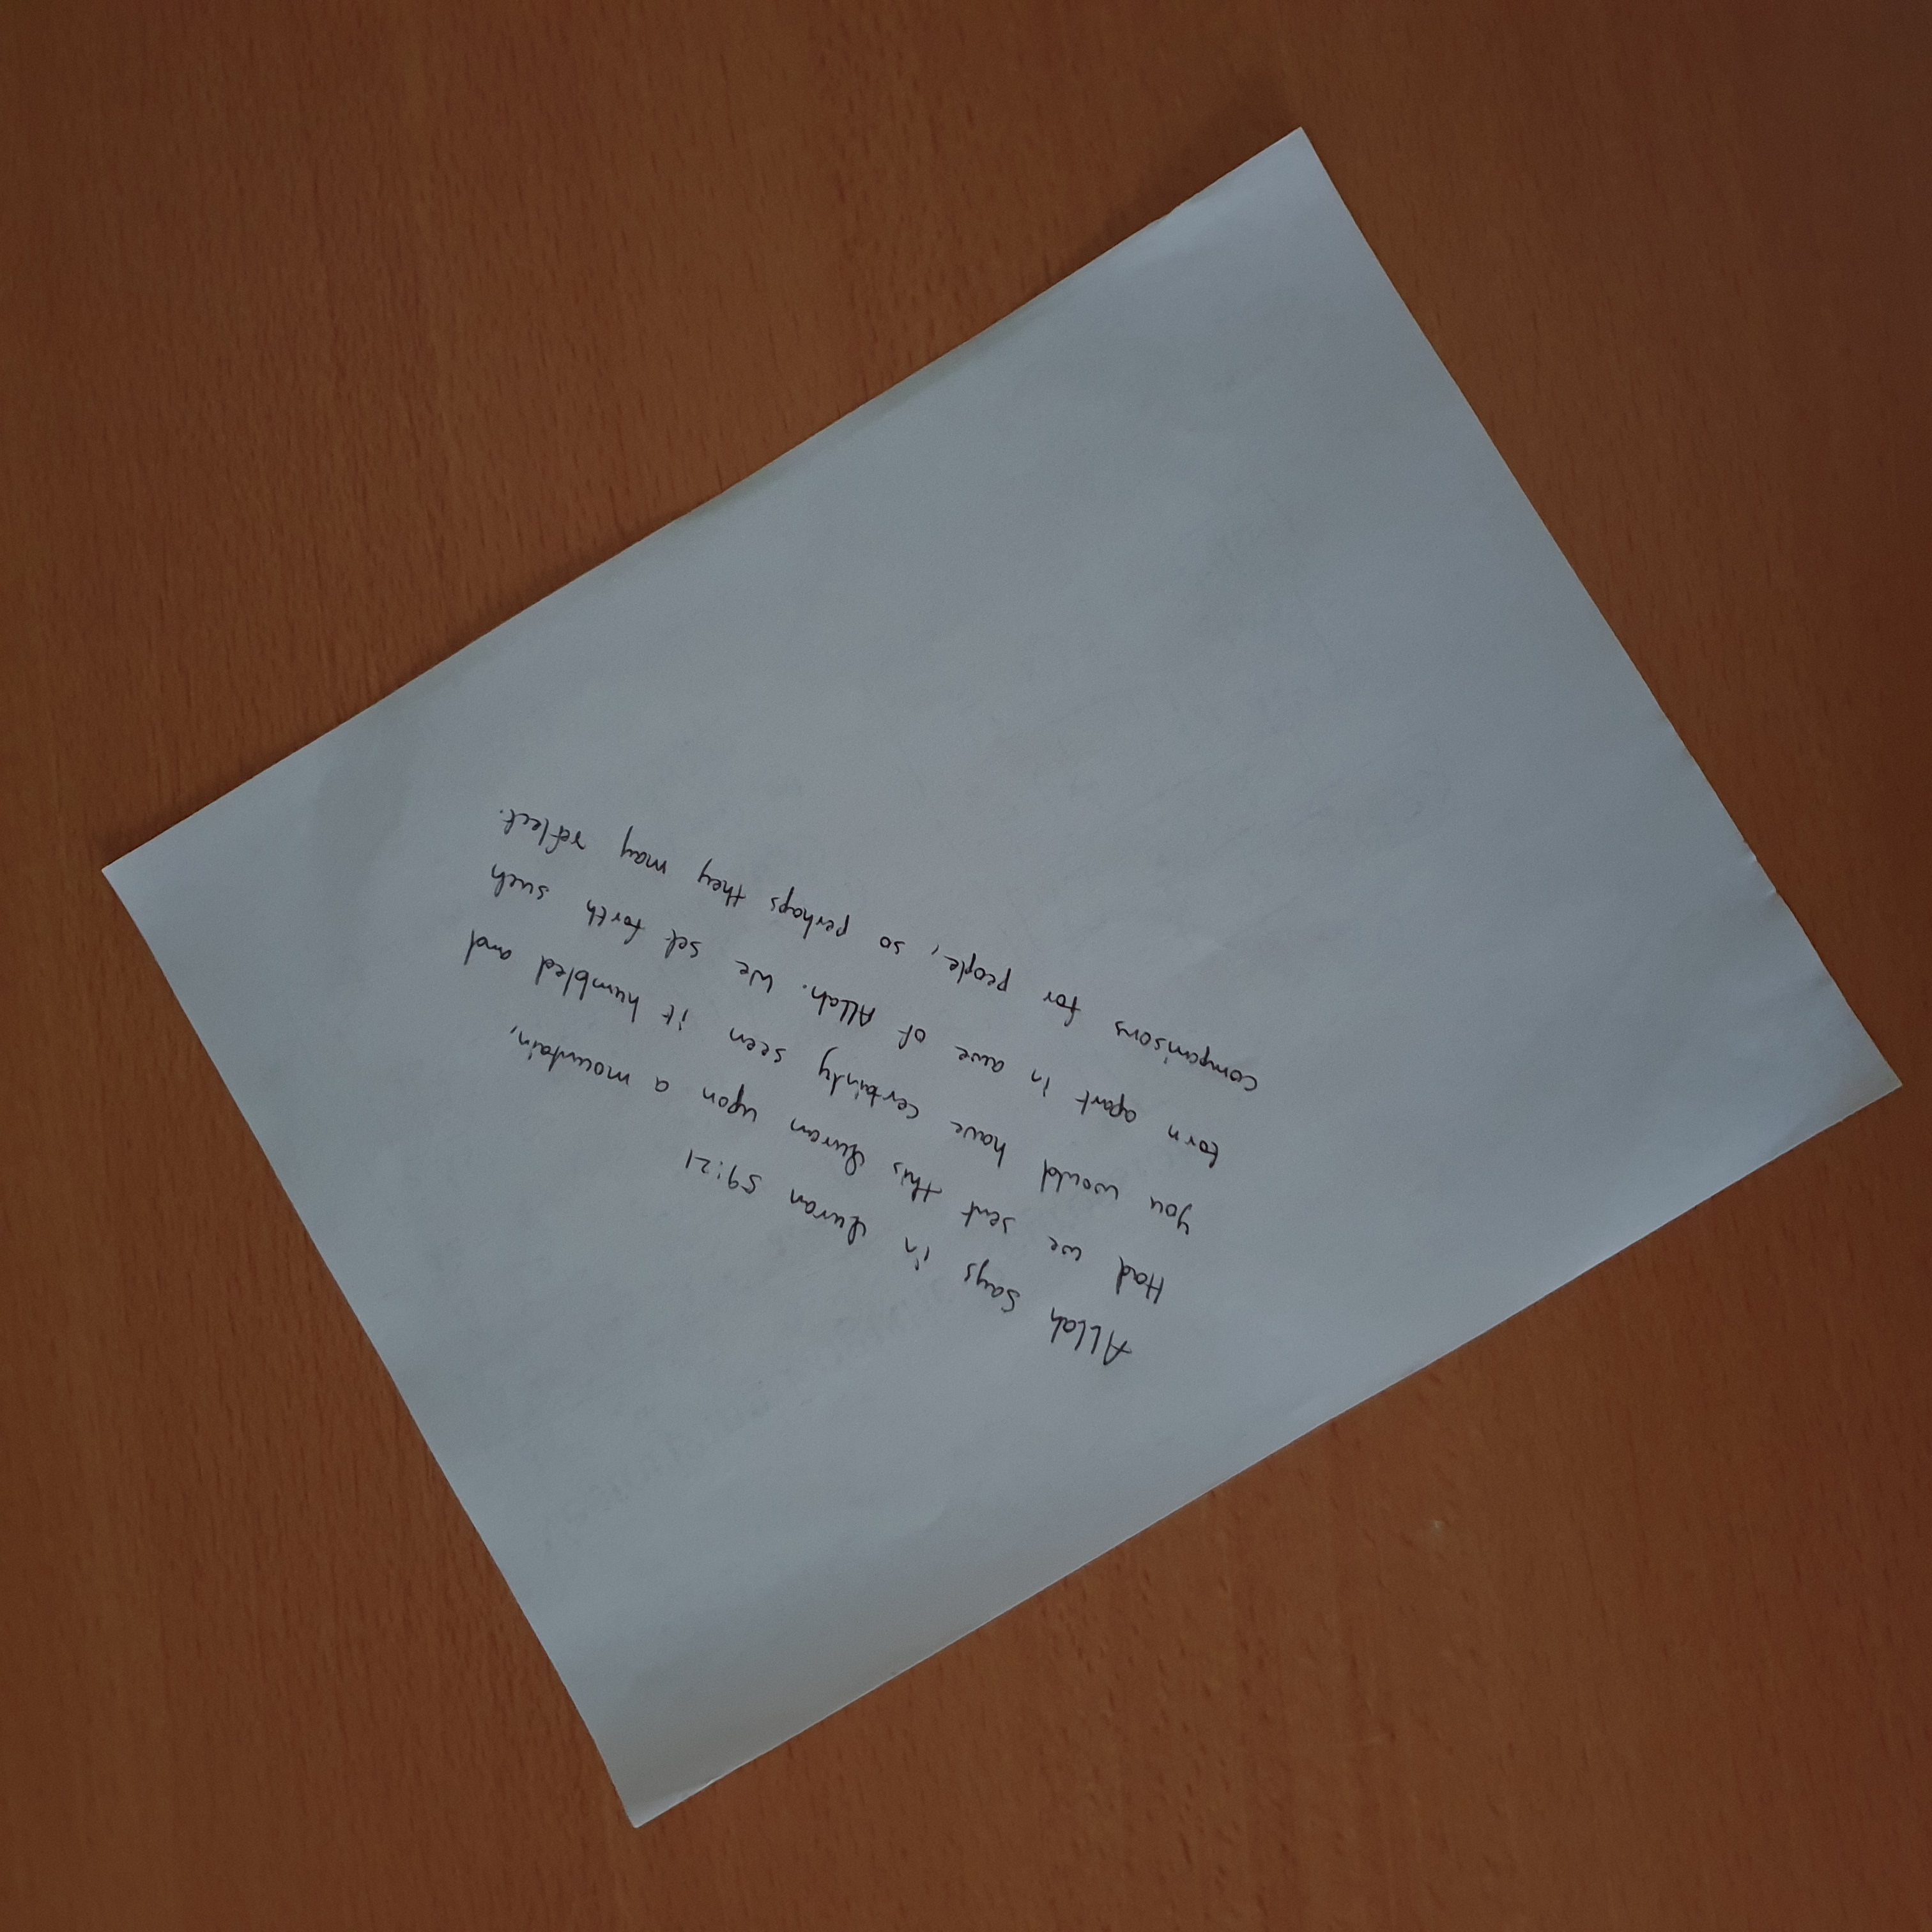 Allah Says in Quran 59:21
Had we sent this Quran upon a mountain,
You would have certainly seen it humbled and
torn apart in awe of Allah. We set forth such
comparisons for people, so perhaps they may reflect.